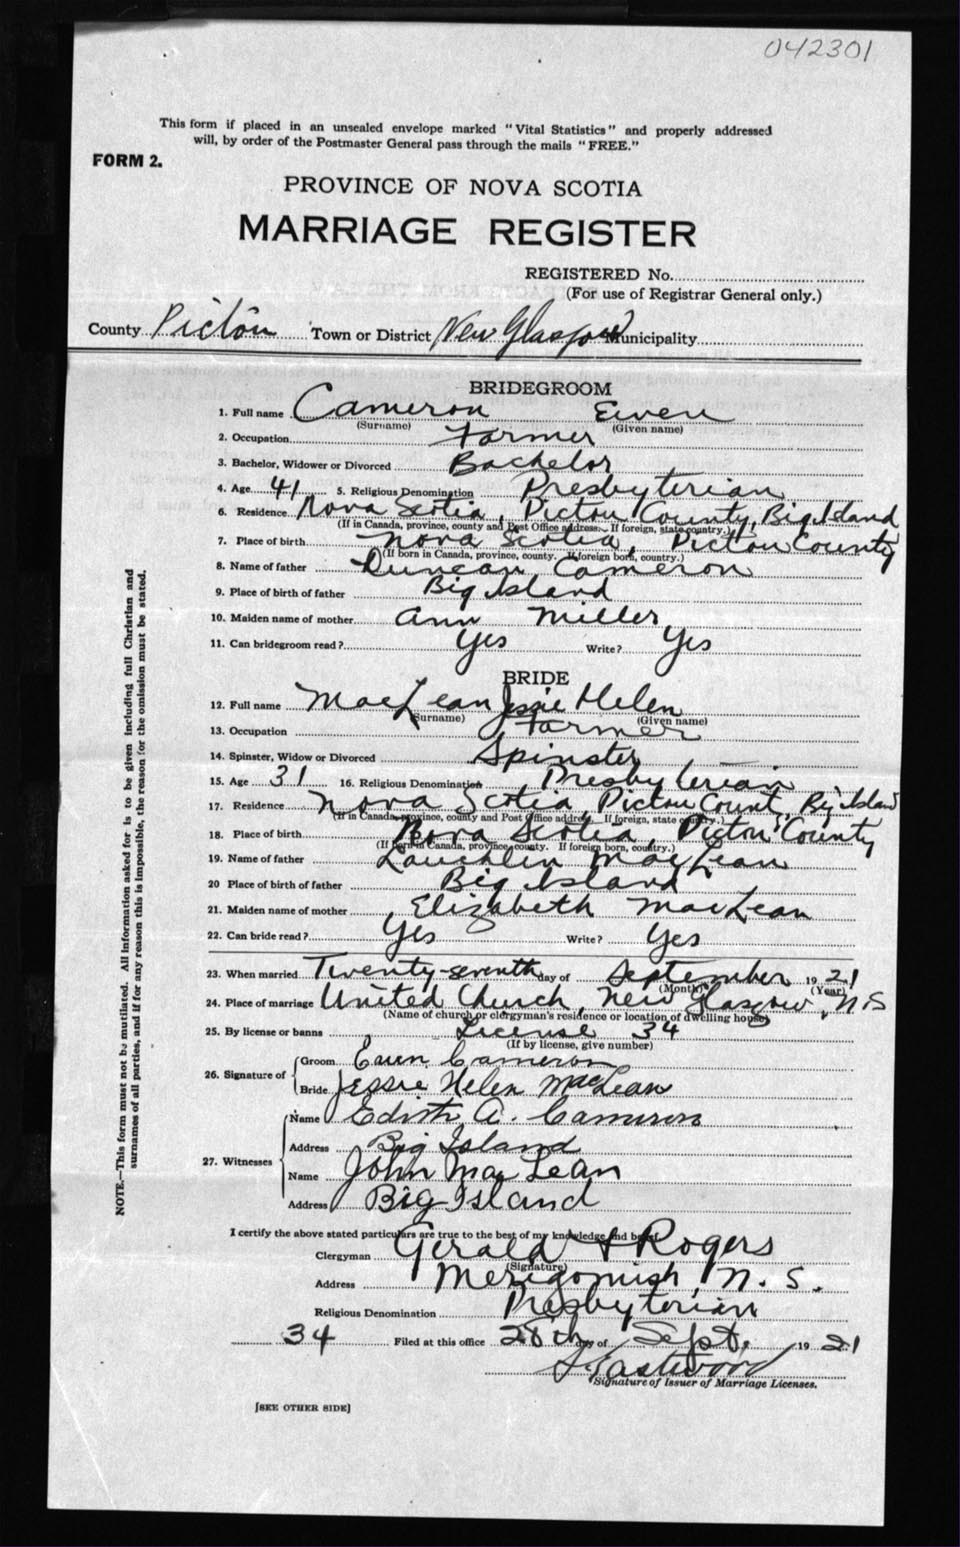 042301
This form if placed in an unsealed envelope marked "Vital Statistics" and properly addressed
will, by order of the Postmaster General pass through the mails "FREE."
FORM 2.
PROVINCE OF NOVA SCOTIA
MARRIAGE REGISTER
REGISTERED No.
(For use of Registrar General only.)
County Pictou Town or District New Glasgow Municipality
BRIDEGROOM
1. Full name Cameron Ewen
(Surname) (Given name)
2. Occupation Farmer
3. Bachelor, Widower or Divorced Bachelor
4. Age 41 5. Religious Denomination Presbyterian
6. Residence Nova Scotia, Pictou County, Big Island
(If in Canada, province, county and Post Office address. If foreign, state country.)
7. Place of birth Nova Scotia, Pictou County
(If born in Canada, province, county. If foreign born, country.)
8. Name of father Duncan Cameron
9. Place of birth of father Big Island
10. Maiden name of mother Ann Miller
11. Can bridegroom read? Yes Write? Yes
BRIDE
12. Full name MacLean Jessie Helen
(Surname) (Given name)
13. Occupation Farmer
14. Spinster, Widow or Divorced Spinster
15. Age 31 16. Religious Denomination Presbyterian
17. Residence Nova Scotia, Pictou Count, Big Island
(If in Canada, province, county and Post Office address. If foreign, state country.)
18. Place of birth Nova Scotia, Pictou County
(If born in Canada, province, county. If foreign born, country.)
19. Name of father Lauchlin MacLean
20 Place of birth of father Big Island
21. Maiden name of mother Elizabeth MacLean
22. Can bride read? Yes Write? Yes
23. When married Twenty-seventh day of September 1921
(Month) (Year)
24. Place of marriage United Church, New Glasgow, N.S
(Name of church or clergyman's residence or location of dwelling house)
25. By license or banns License 34
(If by license, give number)
26. Signature of
Groom Ewen Cameron
Bride Jessie Helen MacLean
27. Witnesses
Name Edith A. Cameron
Address Big Island
Name John MacLean
Address Big Island
I certify the above stated particulars are true to the best of my knowledge and belief.
Clergyman Gerald Rogers
(Signature)
Address Merigomish, N.S.
Religious Denomination Presbyterian
34 Filed at this office 28th day of Sept. 1921
Eastwood
Signature of Issuer of Marriage Licenses.
[SEE OTHER SIDE]
NOTE.—This form must not be mutilated. All information asked for is to be given including full Christian and
surnames of all parties, and if for any reason this is impossible, the reason for the omission must be stated.